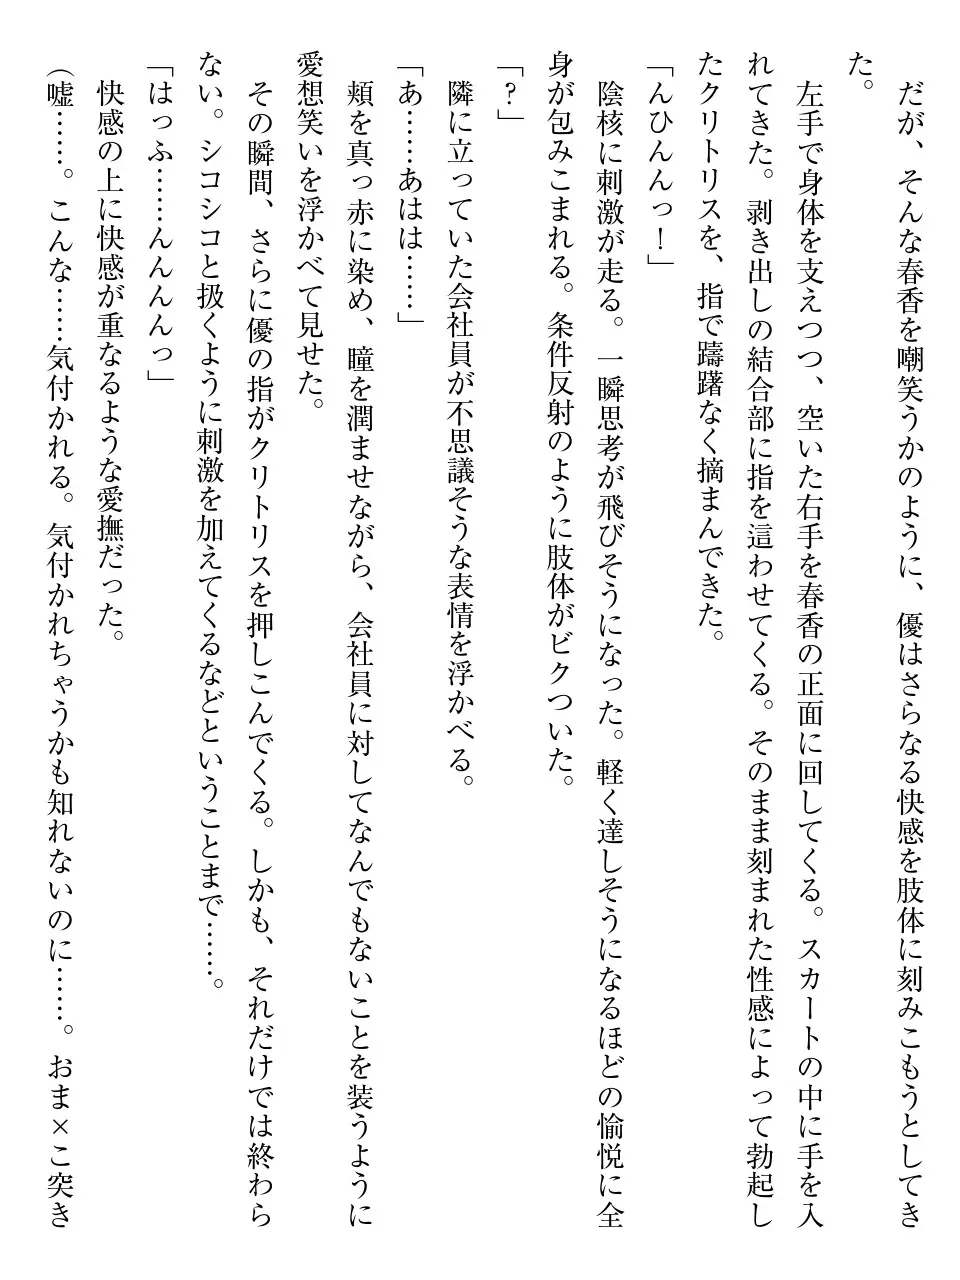 だが、そんな春香を嘲笑うかのように、優はさらなる快感を肢体に刻みこもうとしてき
た。
左手で身体を支えつつ、空いた右手を春香の正面に回してくる。スカートの中に手を入
れてきた。剥き出しの結合部に指を這わせてくる。そのまま刻まれた性感によって勃起し
たクリトリスを、指で躊躇なく摘まんできた。
「んひんんっ！」
陰核に刺激が走る。一瞬思考が飛びそうになった。軽く達しそうになるほどの愉悦に全
身が包みこまれる。条件反射のように肢体がビクついた。
「？」
隣に立っていた会社員が不思議そうな表情を浮かべる。
「あ……あはは……」
頬を真っ赤に染め、瞳を潤ませながら、会社員に対してなんでもないことを装うように
愛想笑いを浮かべて見せた。
その瞬間、さらに優の指がクリトリスを押しこんでくる。しかも、それだけでは終わら
ない。シコシコと扱くように刺激を加えてくるなどということまで……。
「はっふ……んんんんっ」
快感の上に快感が重なるような愛撫だった。
（嘘……。こんな……気付かれる。気付かれちゃうかも知れないのに……。おま×こ突き